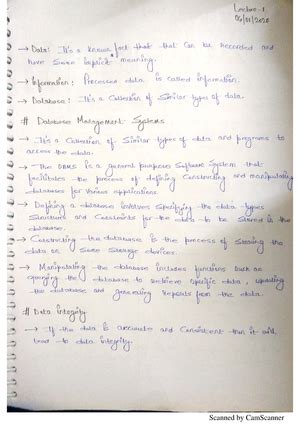 Lecture-1
06/01/2020
→ Data: It's a known fact that that can be recorded and
have some implicit meaning.
→ Information: Processed data is called information.
→ Database: It's a Collection of Similar types of data.
# Database Management Systems
→ It's a Collection of Similar types of data and programs to
access the data.
→ The DBMS is a general purpose Software System that
facilitates the process of defining Constructing and manipulating
databases for various applications.
→ Defining a database involves specifying the data types
Structure and Constraints for the data to be stored in the
database.
→ Constructing the database is the process of storing the
data on some storage devices.
→ Manipulating the database includes functions such as
querying the database to retrieve specific data, updating
the database and generating reports from the data.
# Data integrity
→ If the data is accurate and Consistent then it will
lead to data integrity.
Scanned by CamScanner